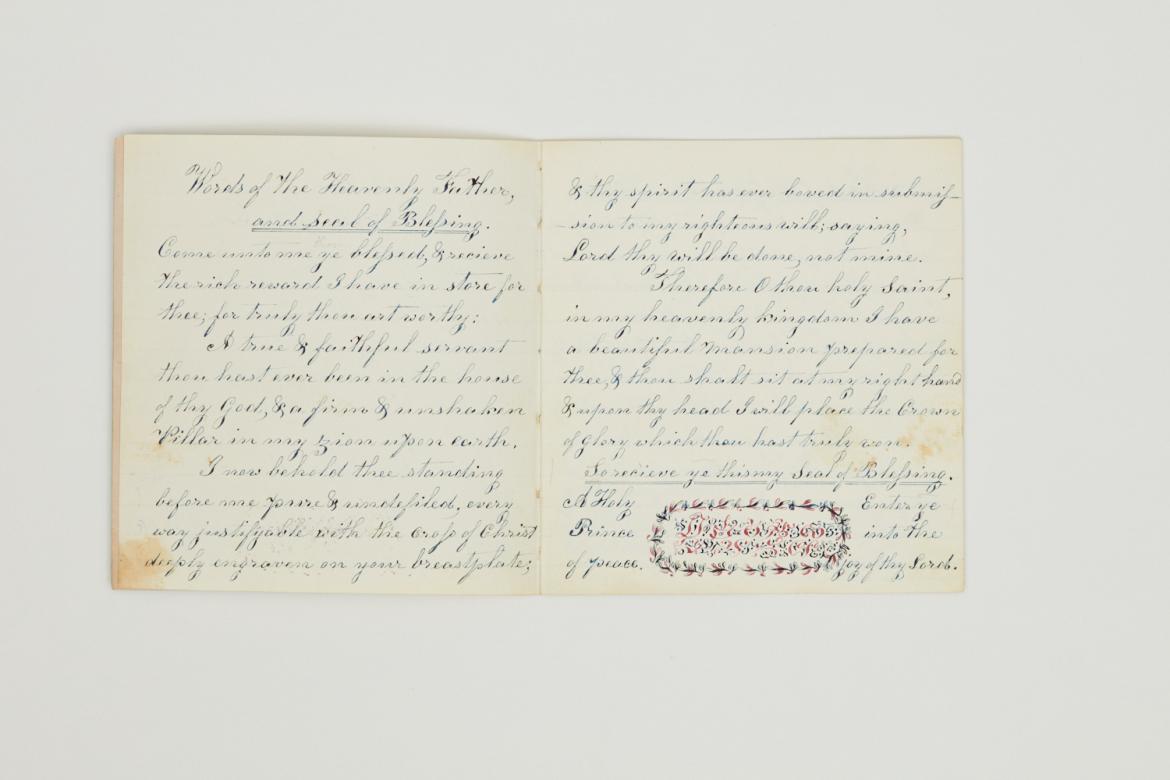 Words of The Heavenly Father,
and seal of Bleſsing.
Come unto me ye bleſsed, & recieve
the rich reward I have in store for
thee; for truly thou art worthy:
A true & faithful servant
thou hast ever been in the house
of thy God, & a firm & unshaken
Pillar in my Zion upon earth.
I now behold thee standing
before me pure & undefiled, every
way justifyable with the croſs of Christ
deeply engraven on your breastplate;
& thy spirit has ever bowed in submiſ-
-sion to my righteous will; saying,
Lord thy will be done, not mine.
Therefore O thou holy Saint,
in my heavenly kingdom I have
a beautiful mansion prepared for
thee, & thou shalt sit at my right hand
& upon thy head I will place the Crown
of glory which thou hast truly won.
So recieve ye this my Seal of Bleſsing.
A Holy
Prince
of peace.
Enter ye
into the
joy of thy Lord.